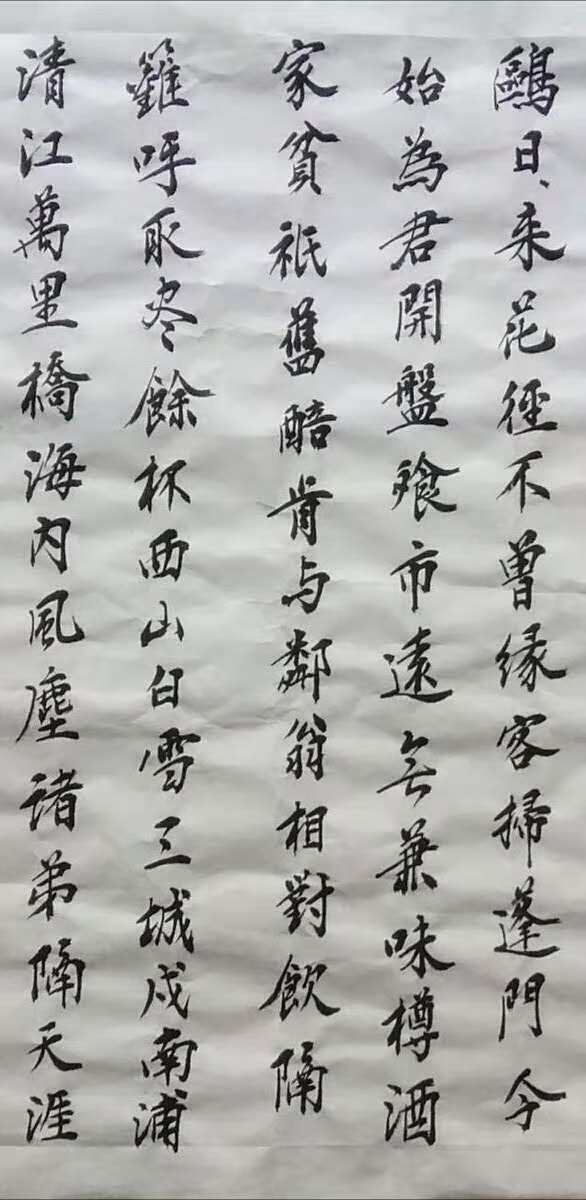 鷗日、来花徑不曾缘客掃蓬門今
始為君開盤飧市遠無兼味樽酒
家貧祇舊醅肯与鄰翁相對飲隔
籬呼取尽餘杯西山白雪三城戍南浦
清江萬里橋海内風塵诸弟隔天涯